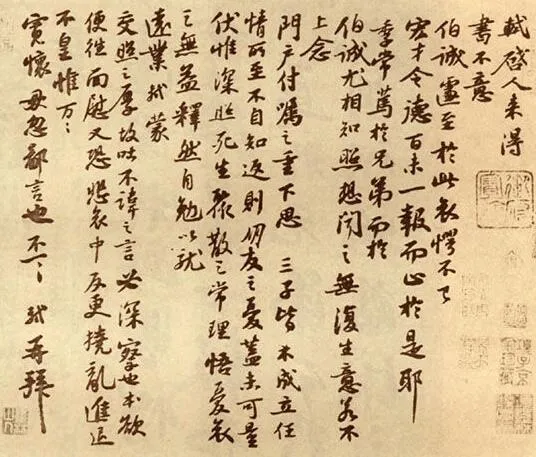 軾啓人來得
書不意
伯誠遽至於此哀愕不已
宏才令德百未一報而止於是耶
季常篤於兄弟而於
伯誠尤相知照想聞之無復生意若不
上念
門戶付囑之重下思三子皆未成立任
情所至不自知返則朋友之憂蓋未可量
伏惟深照死生聚散之常理悟憂哀
之無益釋然自勉以就
遠業軾蒙
交照之厚故吐不諱之言必深察也本欲
便往面慰又恐悲哀中反更撓亂進退
不皇惟萬萬
寬懷毋忽鄙言也不一一軾再拜